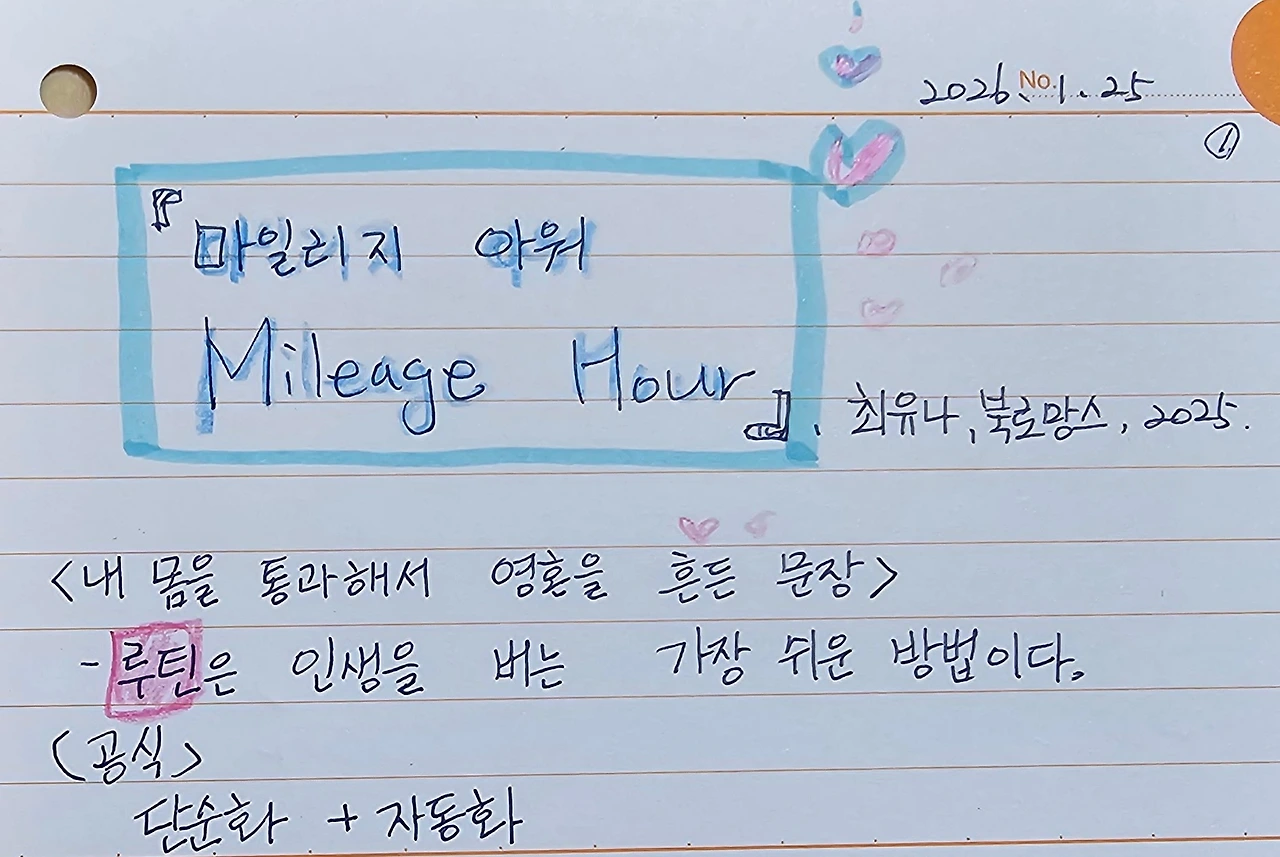 No. 2026. 1. 25
①
『마일리지 아워
Mileage Hour』. 최유나, 북로망스, 2025.
<내 몸을 통과해서 영혼을 흔든 문장>
- 루틴은 인생을 버는 가장 쉬운 방법이다.
<공식>
단순화 + 자동화